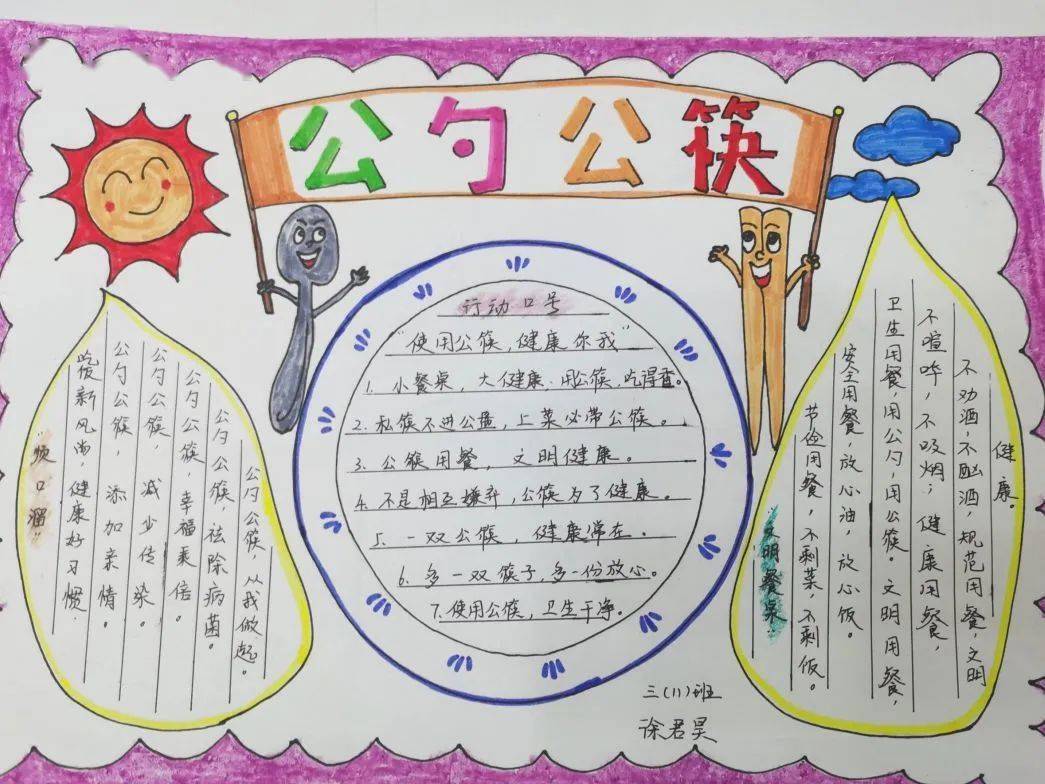 公勺公筷
"顺口溜"
吃饭新风尚，健康好习惯.
公勺公筷，添加亲情。
公勺公筷，减少传染。
公勺公筷，幸福乘倍.
公勺公筷，祛除病菌。
公勺公筷，从我做起。
行动口号
"使用公筷,健康你我"
1. 小餐桌，大健康.用公筷，吃得香。
2.私筷不进公盘，上菜必带公筷。
3、公筷用餐，文明健康。
4.不是相互嫌弃,公筷为了健康。
5、一双公筷，健康常在。
6、多一双筷子,多一份放心。
7、使用公筷，卫生干净。
"文明餐桌"
节俭用餐，不剩菜，不剩饭。
安全用餐 放心油，放心饭。
卫生用餐，用公勺，用公筷。文明用餐，
不喧哗，不吸烟；健康用餐，
不劝酒，不酗酒，规范用餐，文明
健康。
三(11)班
徐君昊